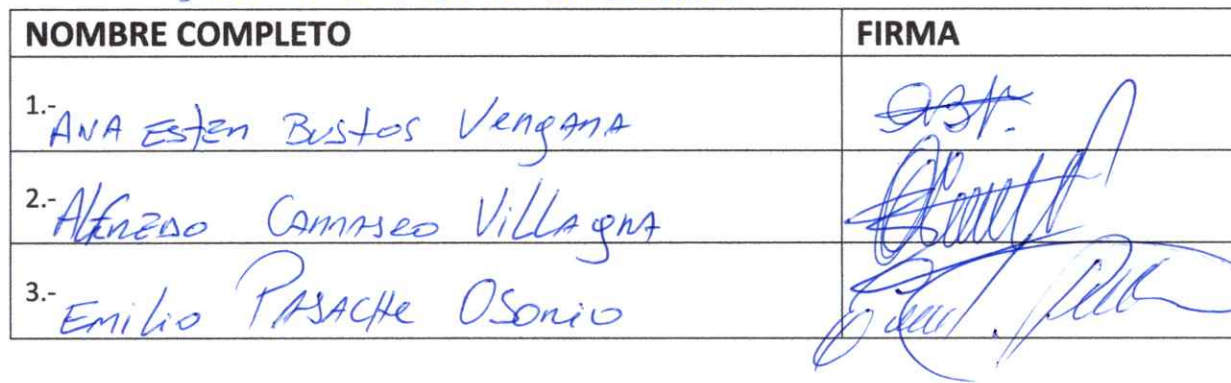 NOMBRE COMPLETO FIRMA
1.- ANA Ester Bustos Vergara
2.- Alfredo Carrasco Villagra
3.- Emilio PASACHE Osorio